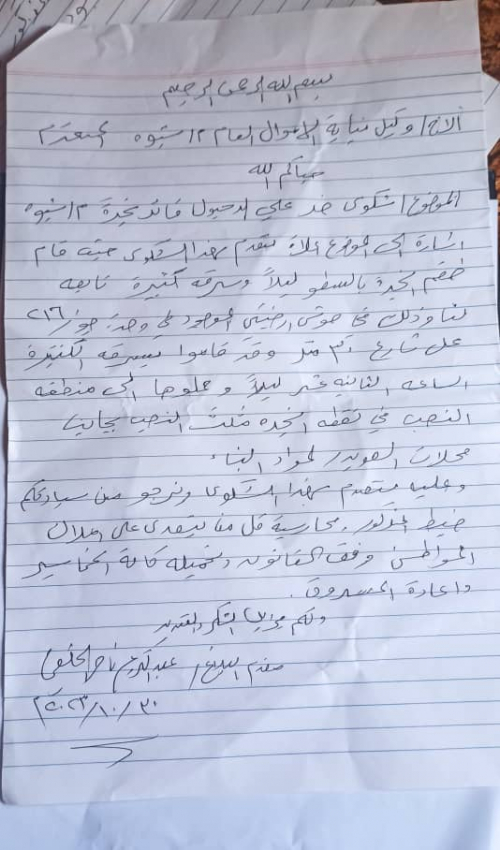 بسم الله الرحمن الرحيم
الأخ/ وكيل نيابة الاموال العام م/ شبوه المحترم
حياكم الله
الموضوع/ شكوى ضد علي الدحبول قائد نجدة م/ شبوه
اشارة الى الموضوع اعلاه نتقدم بهذا الشكوى حيث قام
طقم النجدة بالسطو ليلاً وسرقه كنتيرة تابعه
لنا وذلك في حوش ارضيتي الموجود في وحدة جوار/ ٢١٦
على شارع ٣٠ متر وقد قاموا بسرقه الكنتيرة
الساعه الثانيه عشر ليلاً وحملوها الى منطقه
النصب في نقطه النجده مثلث النصب بجانب
محلات لمواد البناء
وعليه نتقدم بهذا الشكوى ونرجو من سيادتكم
ضبط المذكور ومحاسبة كل من يتعدى على املاك
المواطنين وفق القانون وتحميله كافة الخسائر
واعادة المسروق
ولكم جزيل الشكر والتقدير
مقدم البلاغ/ عبدالكريم ناصر
٢٠٢٣/١٠/٣٠م